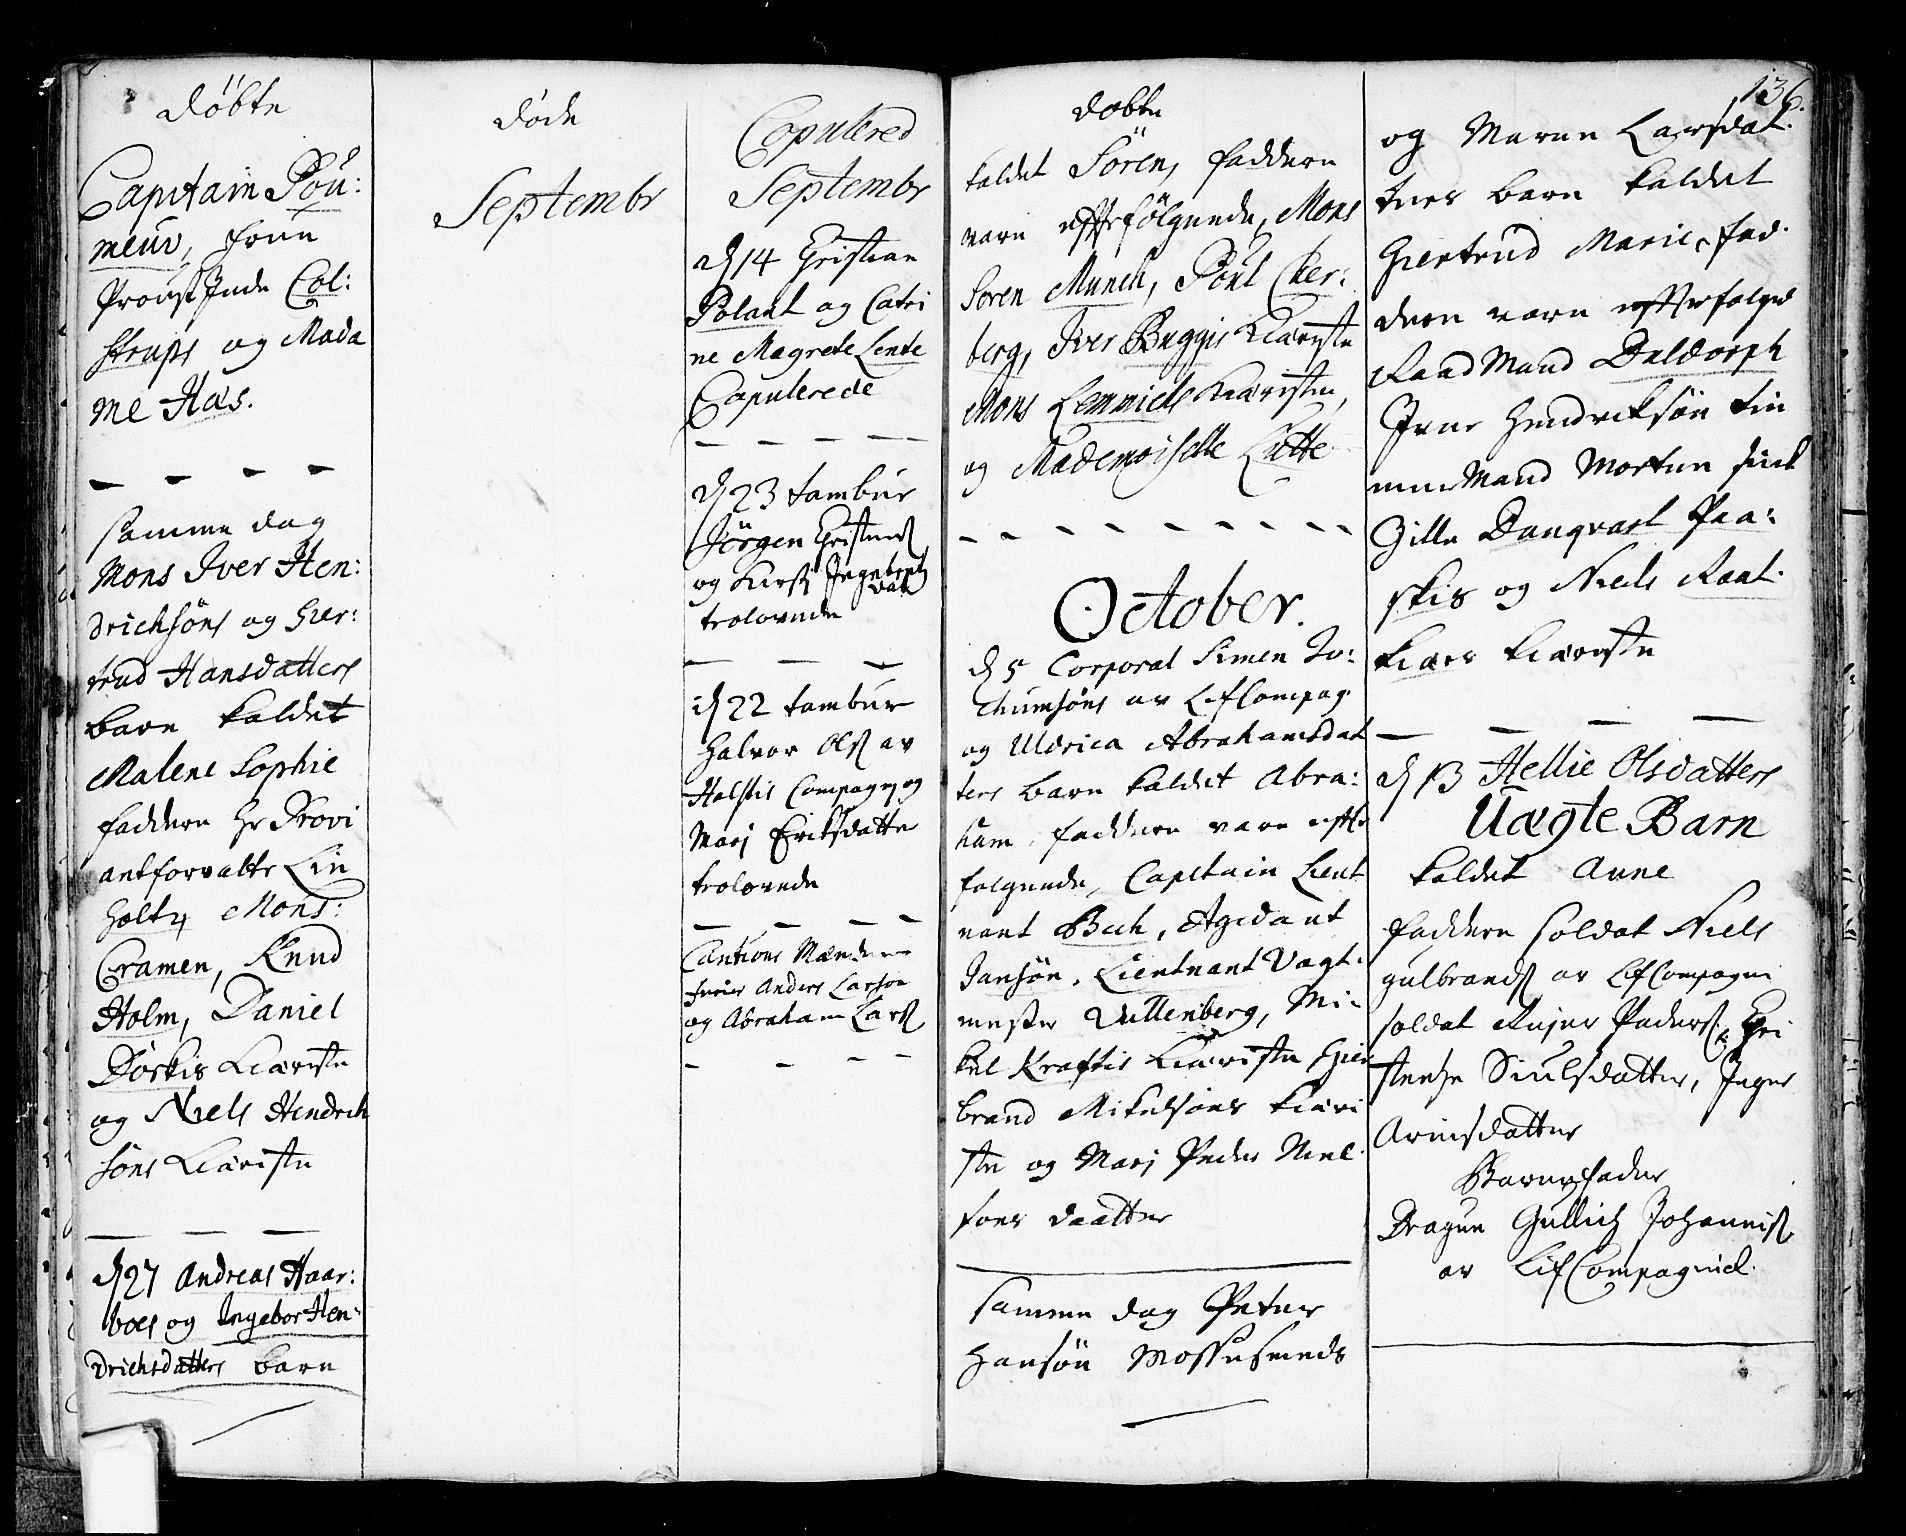 Döbte
Capitain Pou:
meur, frue
Prowstinde Col:
strups og Mada
me Has.
Samme dag
Mons Iver Hen:
drichsöns og Gier:
trud Hansdatters
barn kaldet
Malene Sophie
faddere Hr Provi
antforvalter Lin
holt, Mons:
Cramen, Knud
Holm, Daniel
Dorkis Kiæriste
og Niels Hendrich
söns Kiæriste
d 27 Andreas Haar:
boes og Ingebor Hen:
drichsdatters barn
Döde
Septembr
Copulered
Septembr
d 14 Christian
Polant og Catri
ne Magrete Lente
Copulerede
d 23 tambur
Jörgen Christens
og Kirsti Ingebretz
dat
trolovede
d 22 tambur
Halvor Ols av
Holstis Compagn og
Marj Eriksdatter
trolovede
Cautions Mændene
Anders Larson
og Abraham Lars
Döbte
136.
kaldet Sören, faddere
vare efterfölgende, Mons
Soren Munch, Poul Cher:
berg, Iver Buggis Kiæriste
Mons Lemmichs Kiæriste,
og Mademoiselle Lutte
October.
d 5 Corporal Simen Jo:
chumsöns av Lif Compag
og Uldrica Abrahamsdat
ters barn kaldet Abra:
ham, faddere vare efter
folgende, Capitain Lieut
nant Bech, Agidant
Jansön, Lieutnant Vagt:
mester Vullenberg, Mi:
kel Kraftis Kiæriste Gul
brand Mikelsöns Kiæri
ste og Marj Peder Niel
sens daatter
samme dag Peter
Hansön Mossesmeds
og Maren Larsdat:
ters barn kaldet
Giertrud Marie, fad:
dere vare efterfolgend
Raad Mand Daldorph
Jens Hendricksön Tim
mermand Morten smed
Gille Danqvart Paa:
skis og Niels Raat:
kiærs kiæriste
d 13 Hellie Olsdatters
Uægte Barn
kaldet Anne
faddere soldat Niels
gulbrands av Lif Compagni
soldat Rejer Peders, Chri
stense Siulsdatter, Inger
Arnisdatter
Barnefader
Dragun Gullich Johannis
av Lif Compagniet.